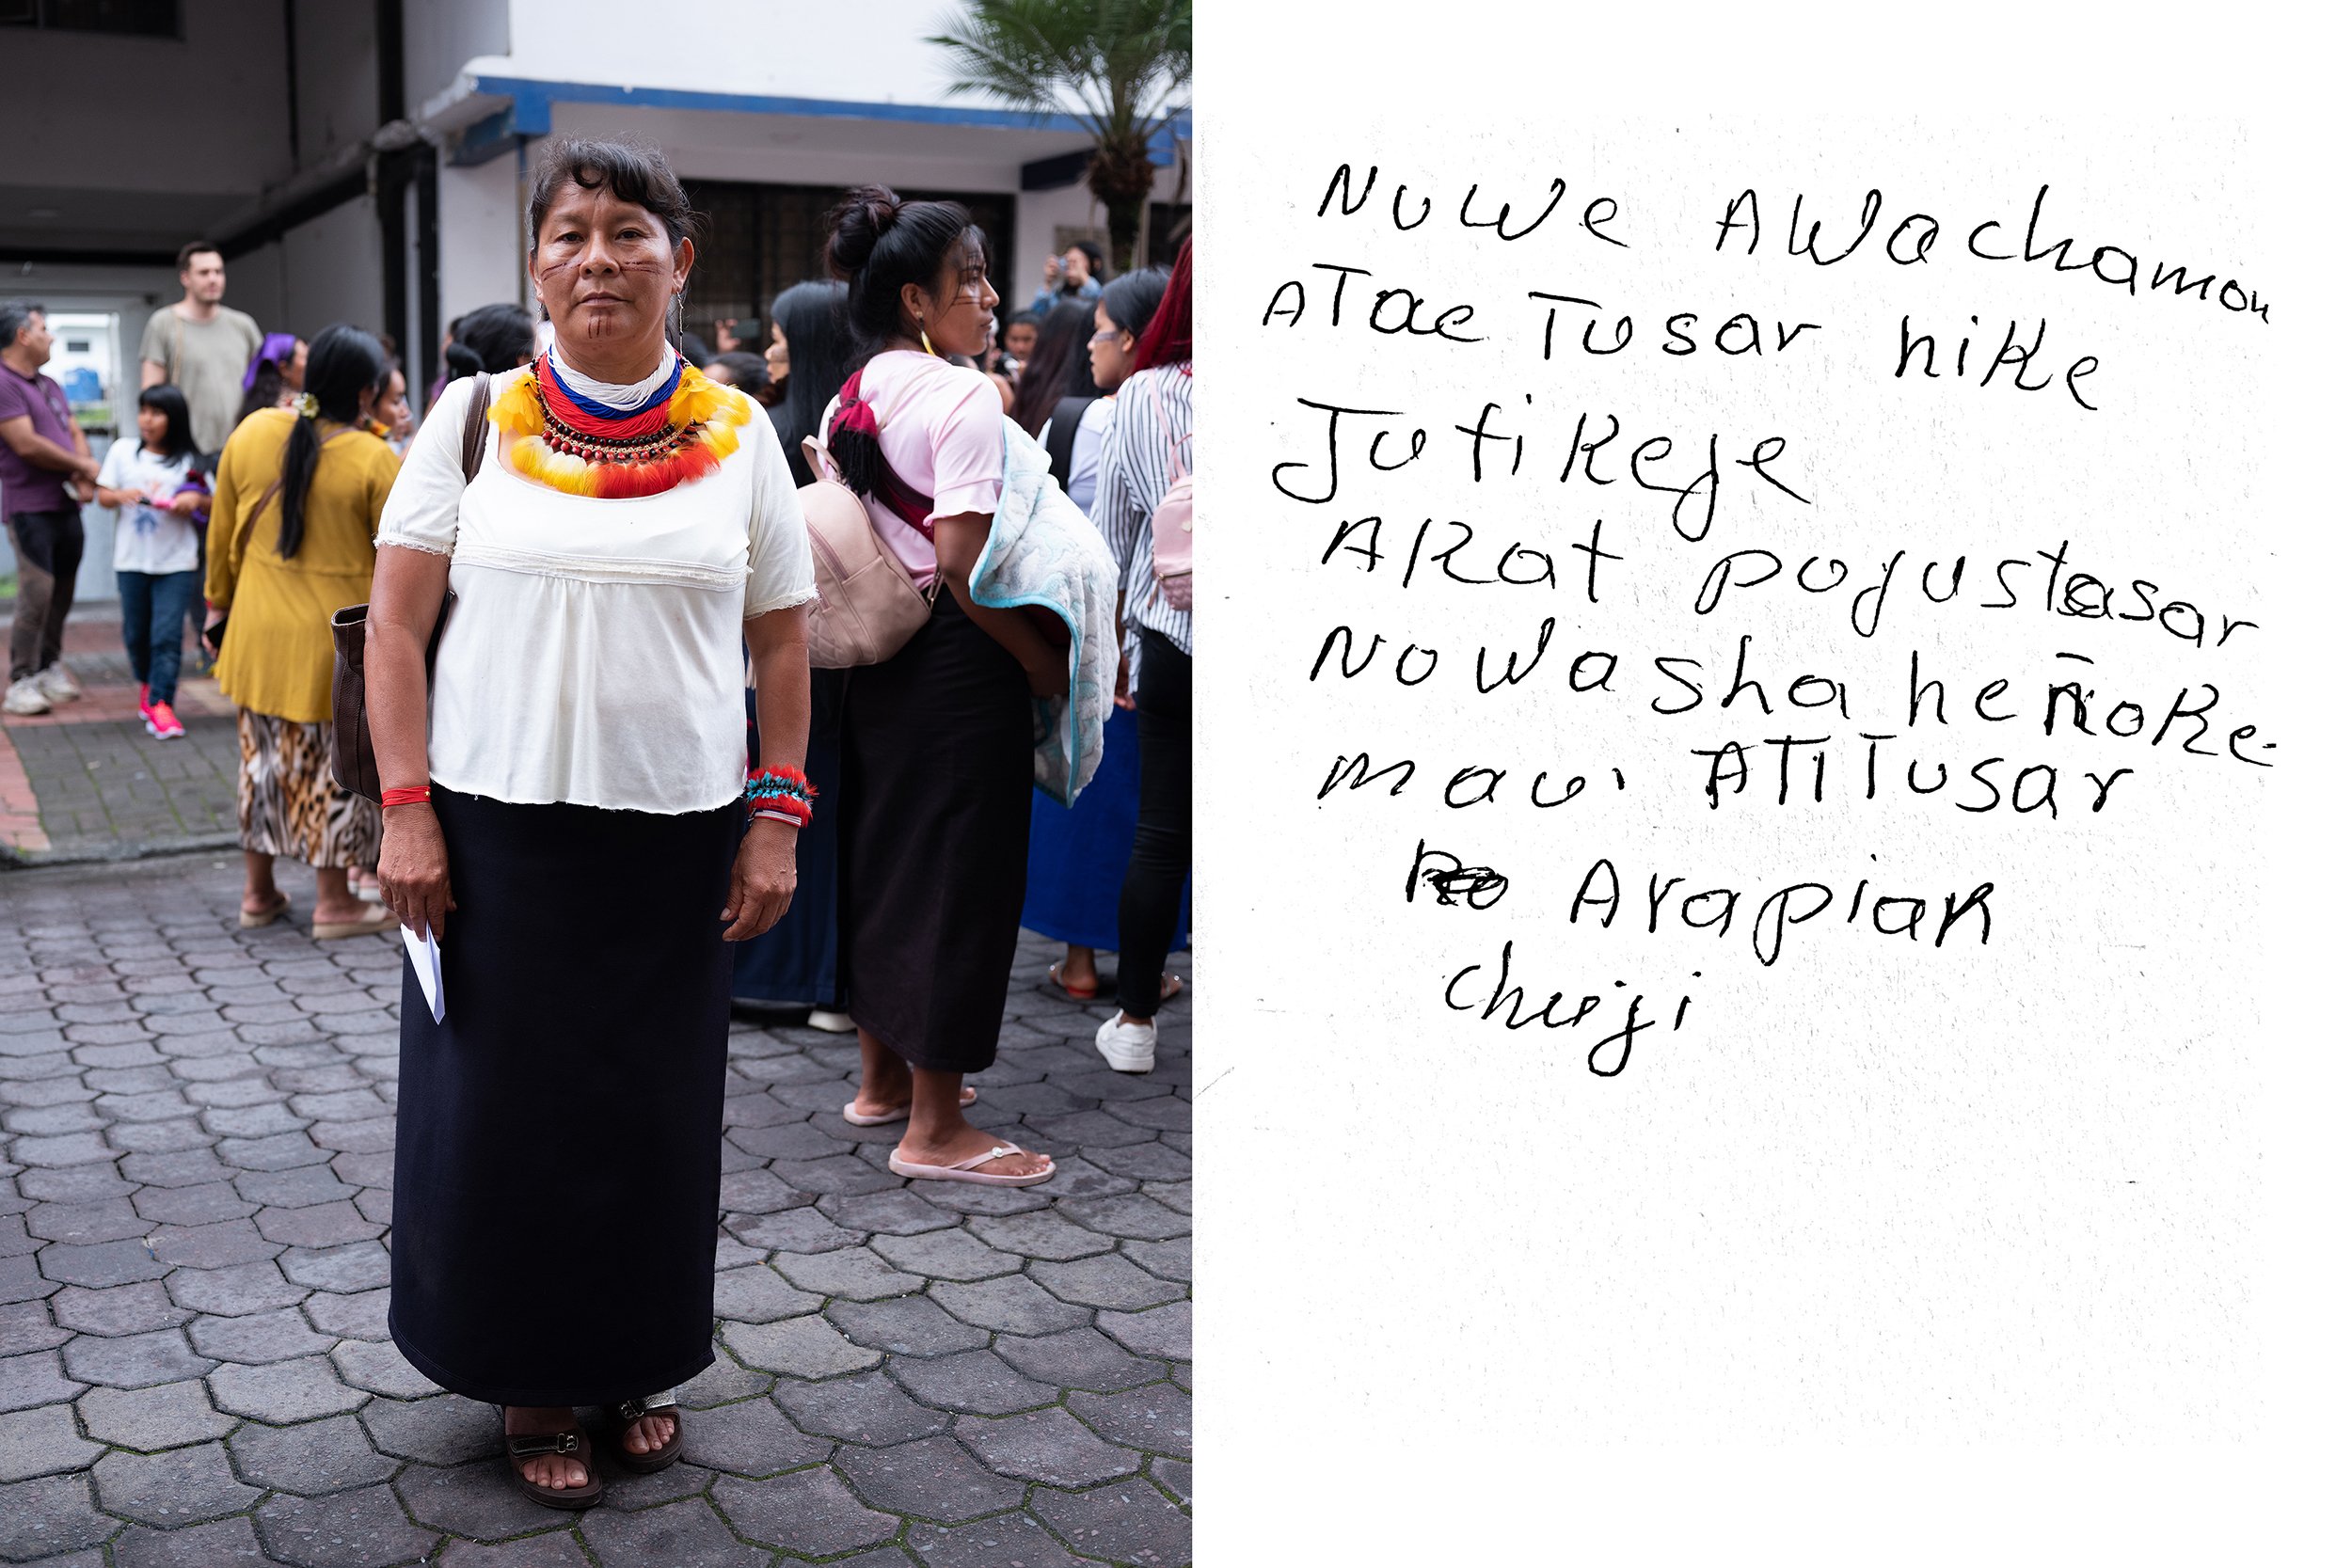 Nuwe Awachamou
ATae Tusar niKe
Jutikeje
AKat pojustasar
Nowasha heñoke
mau. ATITusar
Arapiak
chuiji